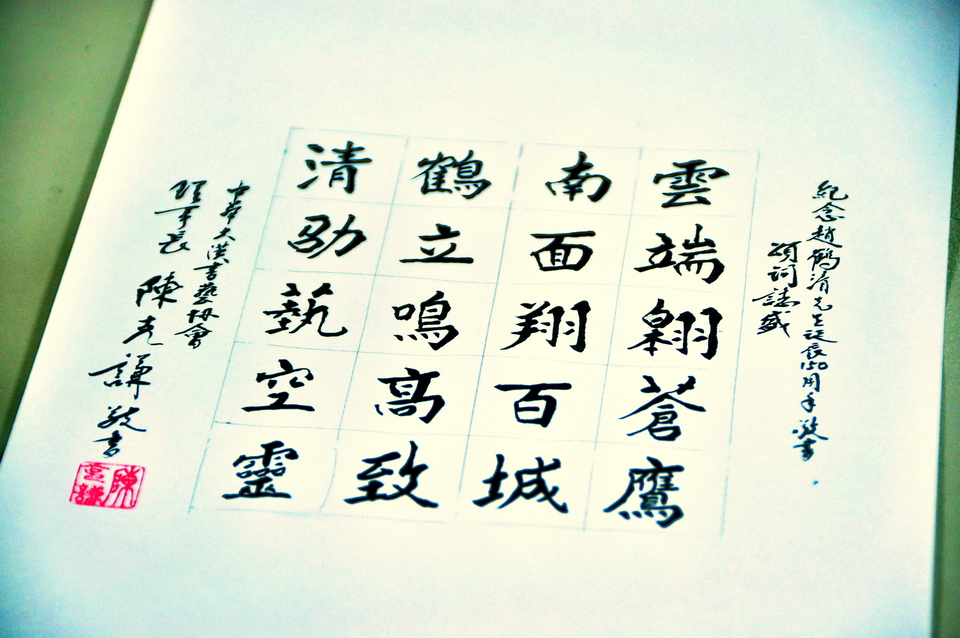 紀念趙鶴清先生誕辰150周年敬書
頌詞誌盛
雲端翱蒼鷹
南面翔百城
鶴立鳴髙致
清劭藝空靈
中華大漢書藝協會
理事長 陳 謙 敬書